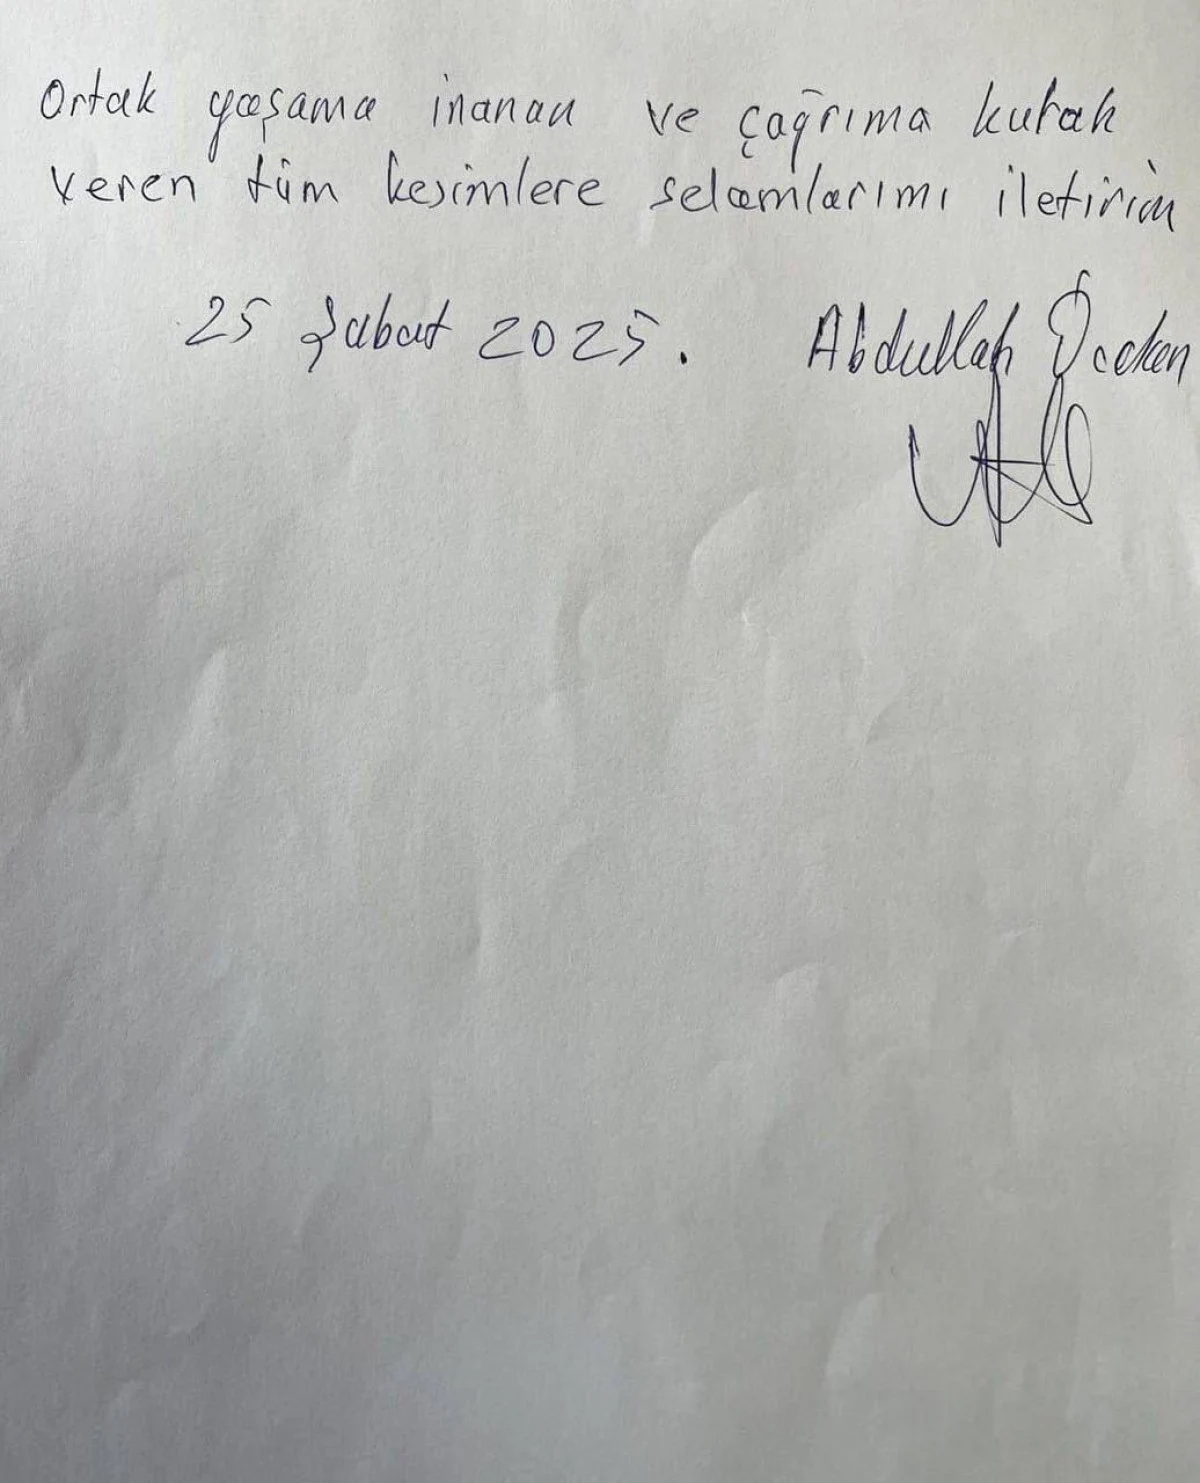 Ortak yaşama inanan ve çağrıma kulak
veren tüm kesimlere selamlarımı iletirim
25 Şubat 2025. Abdullah Öcalan